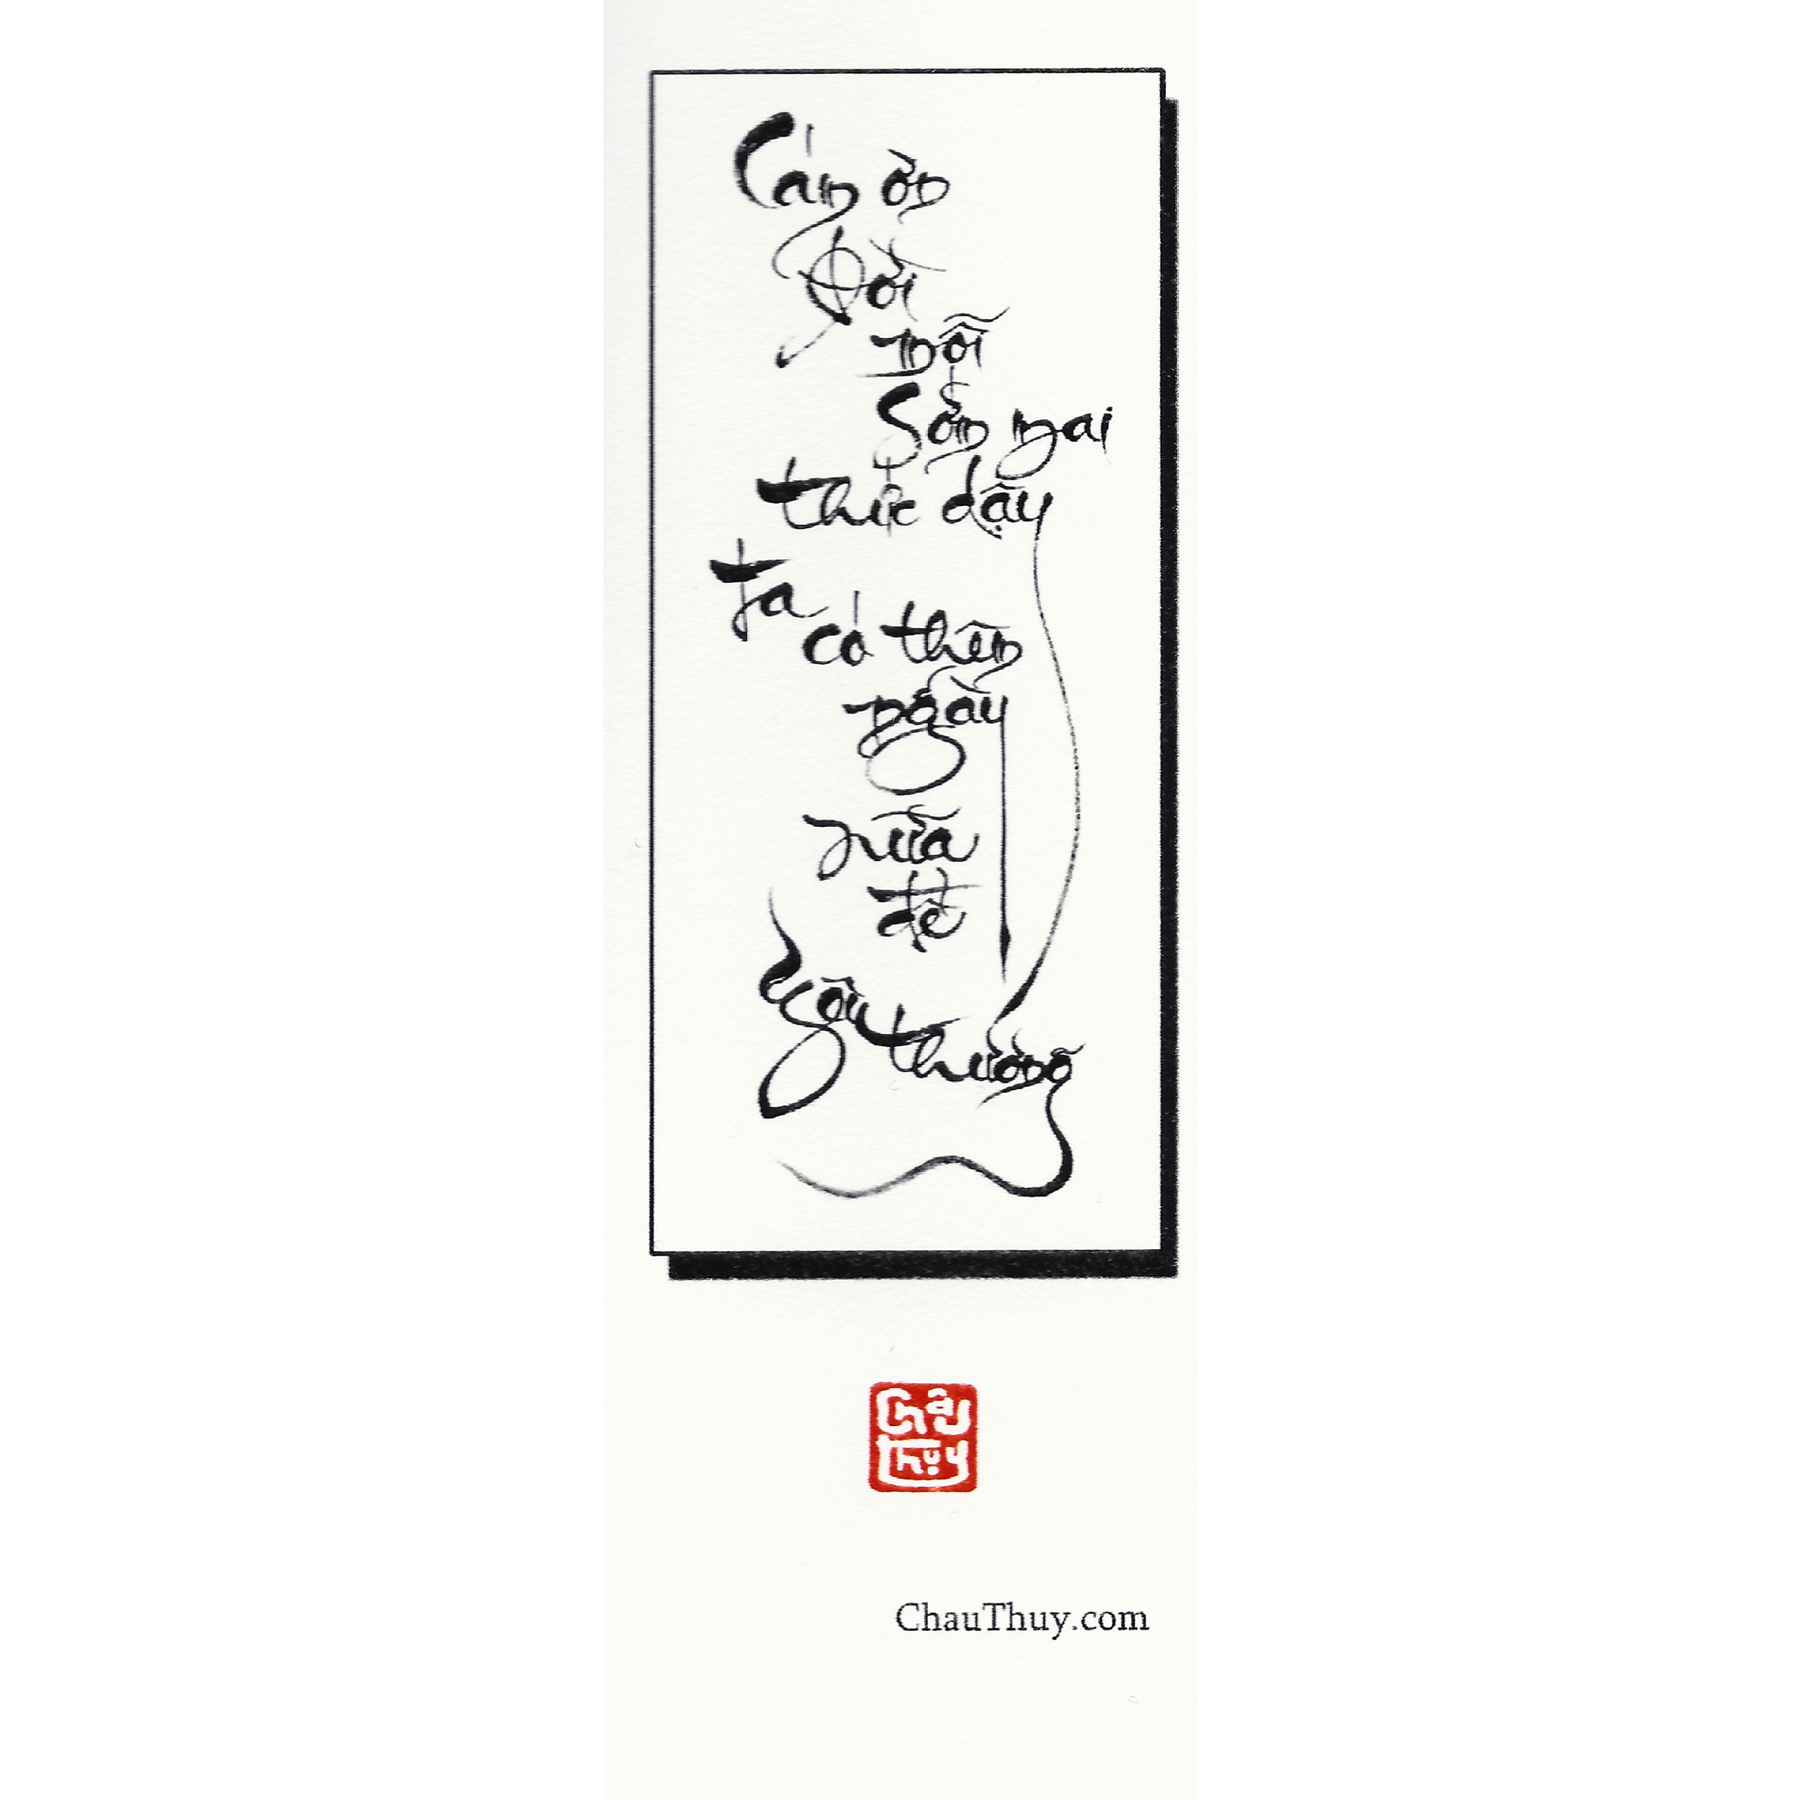 Cám ơn
Đời
mỗi
Sớm mai
thức dậy
Ta
có thêm
ngày
nữa
để
yêu thương
Châu
Thụy
ChauThuy.com